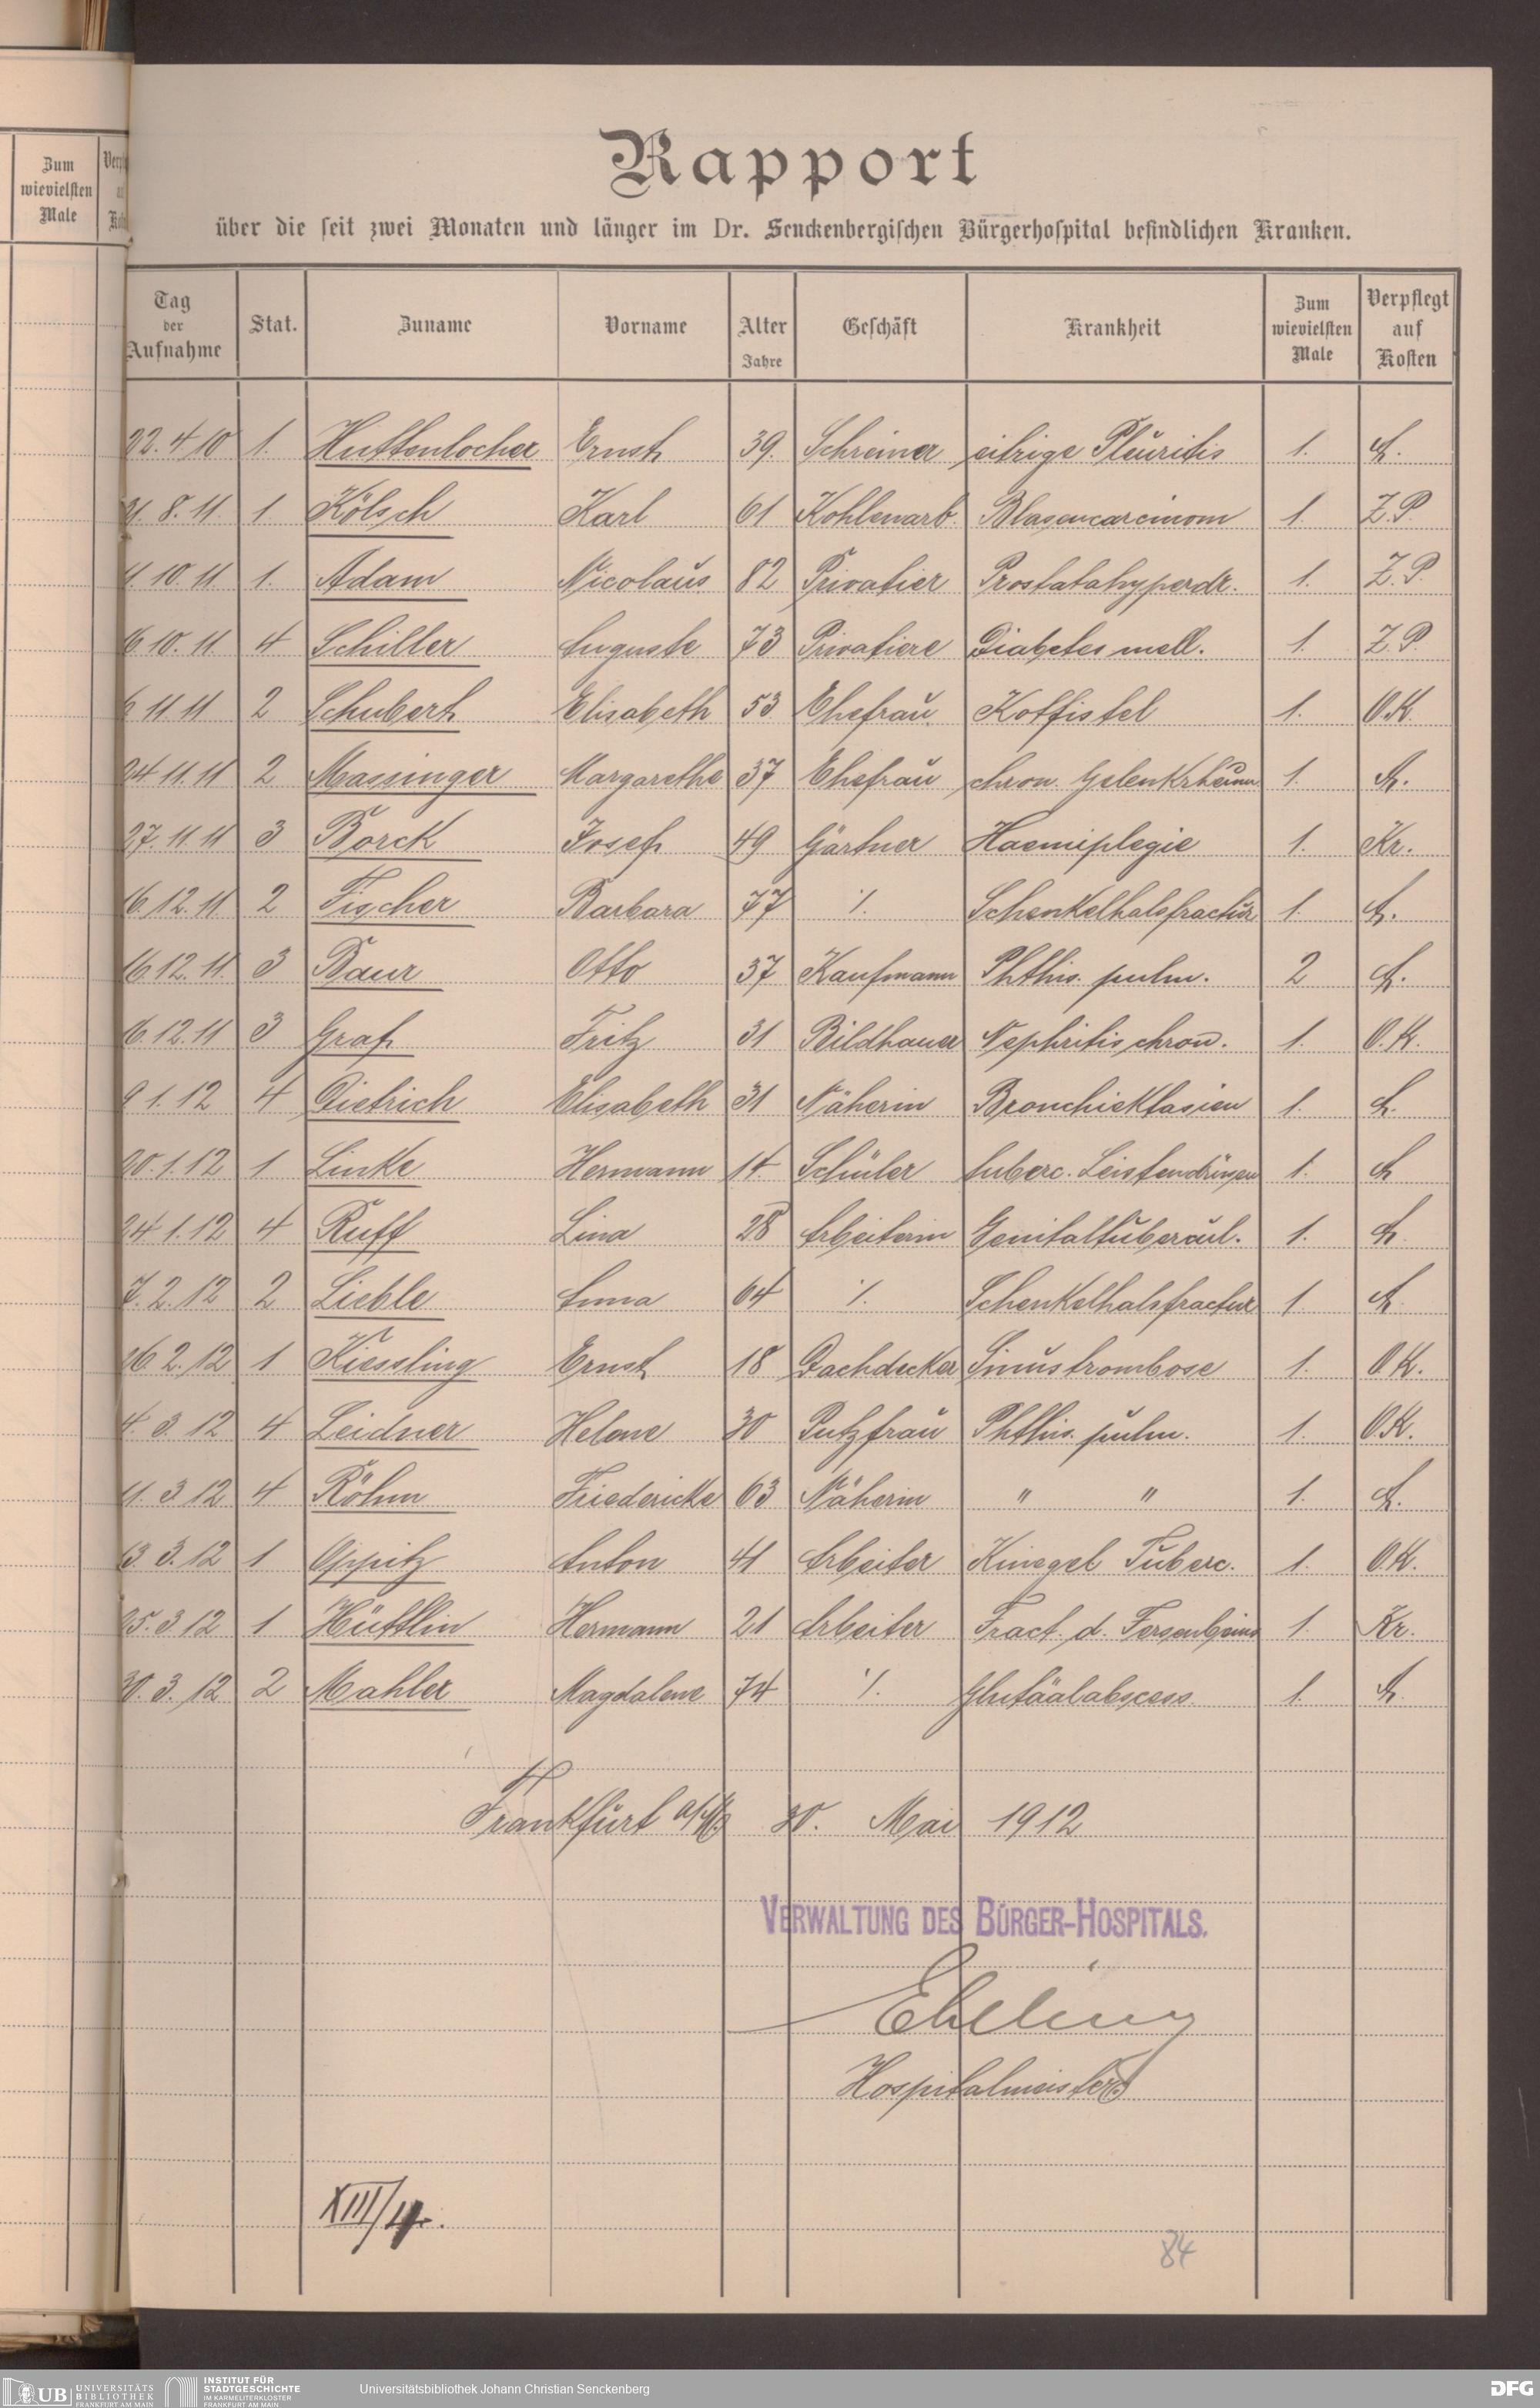 Zum
wievielsten
Male
Rapport
über die seit zwei Monaten und länger im Dr. Senckenbergischen Bürgerhospital befindlichen Kranken.
Tag der Aufnahme Stat. Zuname Vorname Alter Jahre Geschäft Krankheit Zum wievielsten Male Verpflegt auf Kosten
22.4 10 1. Huttenlocher Ernst 39. Schreiner eitrige Pleuritis 1. A.
8. 11. 1. Kölsch Karl 61 Kohlenarb. Blasencarcinom 1. Z.P.
10. 11 1. Adam Nicolaus 82 Privatier Prostatahyperdr. 1. Z.P.
10. 11 4 Schiller Auguste 73 Privatiere Diabetes mell. 1. Z.P.
11 11 2 Schubert Elisabeth 53 Ehefrau Kotfistel 1. O.K.
24 11. 11 2 Massinger Margarethe 37 Ehefrau chron. Gelenkrheum. 1. A.
27. 11 11 3 Borck Josef 49 Gärtner Haemiplegie 1. Kr.
16. 12. 11 2 Fischer Barbara 77 ·/. Schenkelhalsfractur 1. A.
16. 12. 11. 3 Baur Otto 37 Kaufmann Phthis. pulm. 2 A.
16. 12. 11 3 Graf Fritz 31 Bildhauer Nephritis chron. 1. O.K.
9 1. 12 4 Dietrich Elisabeth 31 Näherin Bronchiektasien 1. A.
20. 1. 12 1 Linke Hermann 14. Schüler tuberc. Leistendrüsen 1. A
24 1. 12 4 Ruff Lina 28 Arbeiterin Genitaltubercul. 1. A.
7. 2. 12 2 Lieble Anna 64 ·/. Schenkelhalsfractur 1. A.
26. 2. 12 1 Kiessling Ernst 18 Dachdecker Sinustrombose 1. O.K.
4. 3. 12 4 Leidner Helene 30 Putzfrau Phthis. pulm. 1. O.K.
11. 3 12 4 Röhm Friedericke 63 Näherin " " 1. A.
13. 3. 12 1 Oppitz Anton 41 Arbeiter Tuberc. 1. O.K.
25. 3 12 1 Hüttlin Hermann 21 Arbeiter Fract. d. Fersenbeins 1. Kr.
30. 3. 12 2 Mahler Magdalene 74 ·/. Glutäalabscess. 1. A.
Frankfurt a/M 30. Mai 1912
VERWALTUNG DES BÜRGER-HOSPITALS.
Ebeling
Hospitalmeister
XIII/4.
84
UB UNIVERSITÄTS BIBLIOTHEK FRANKFURT AM MAIN
INSTITUT FÜR STADTGESCHICHTE IM KARMELITERKLOSTER FRANKFURT AM MAIN
Universitätsbibliothek Johann Christian Senckenberg
DFG